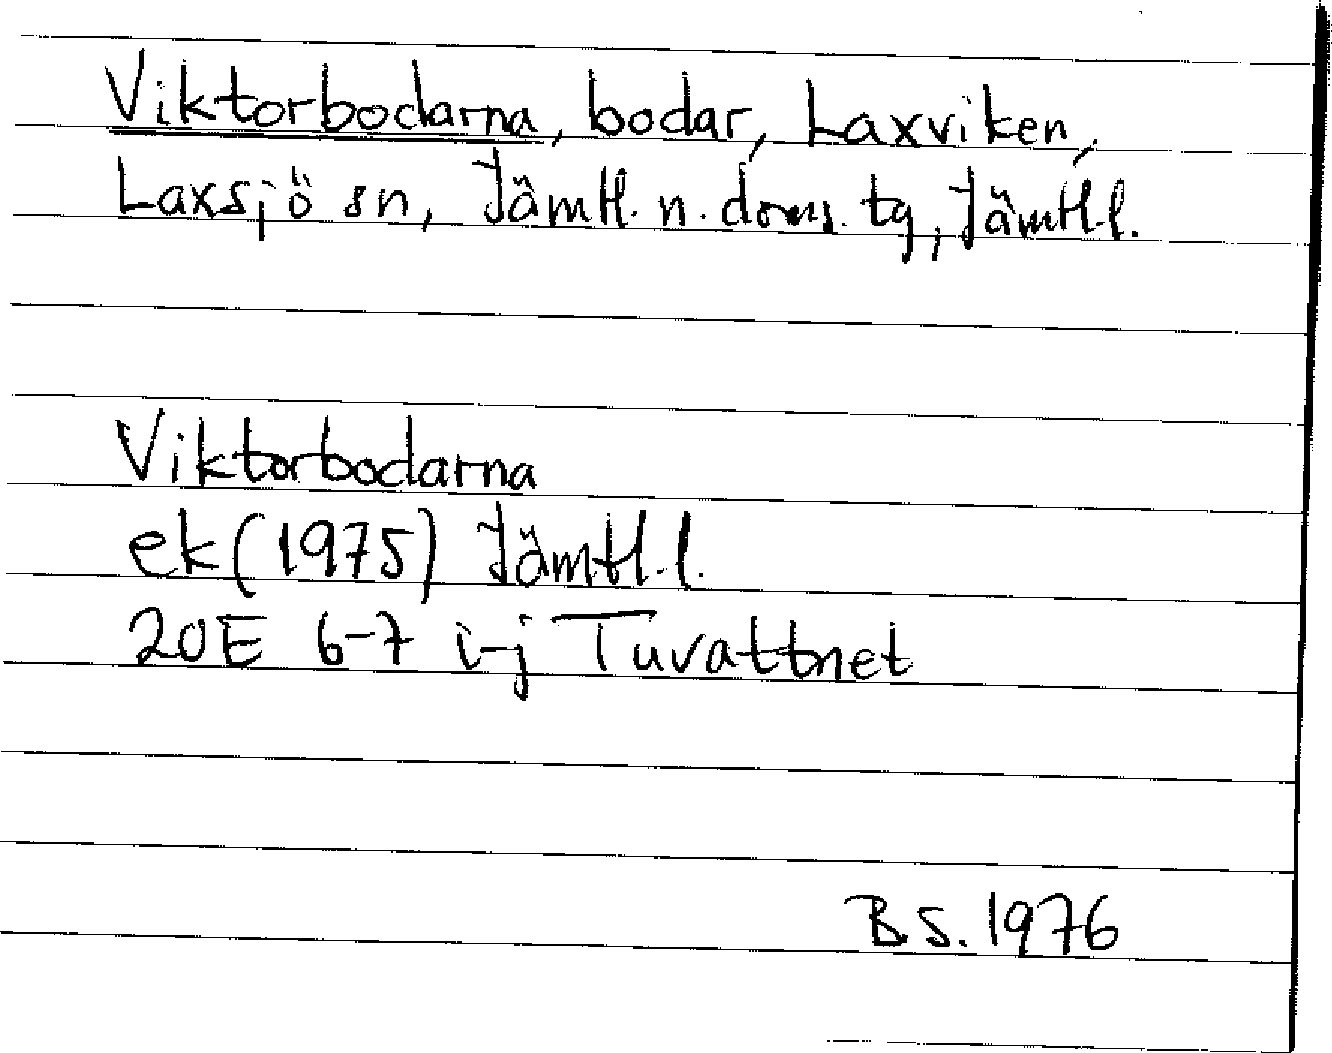 Viktorbodarna, bodar, Laxviken,
Laxsjö sn, Jämtl. n. doms. tg, Jämtl. l.
Viktorbodarna
ek (1975) Jämtl. l.
20E 6-7 i-j Tuvattnet
B.S. 1976